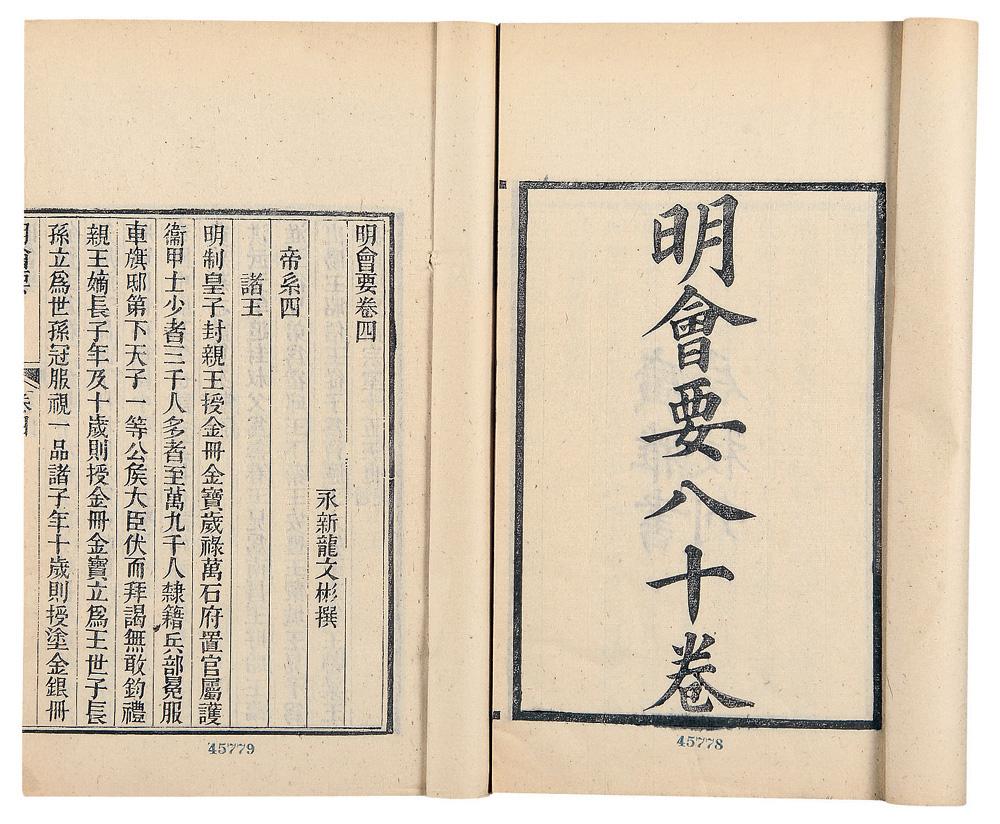 明會要八十卷
45778
明會要卷四
永新龍文彬撰
帝系四
諸王
明制皇子封親王授金冊金寶歲祿萬石府置官屬護
衞甲士少者三千人多者至萬九千人隸籍兵部冕服
車旗邸第下天子一等公矦大臣伏而拜謁無敢鈞禮
親王嫡長子年及十歲則授金冊金寶立爲王世子長
孫立爲世孫冠服視一品諸子年十歲則授塗金銀冊
明會要
卷四
45779